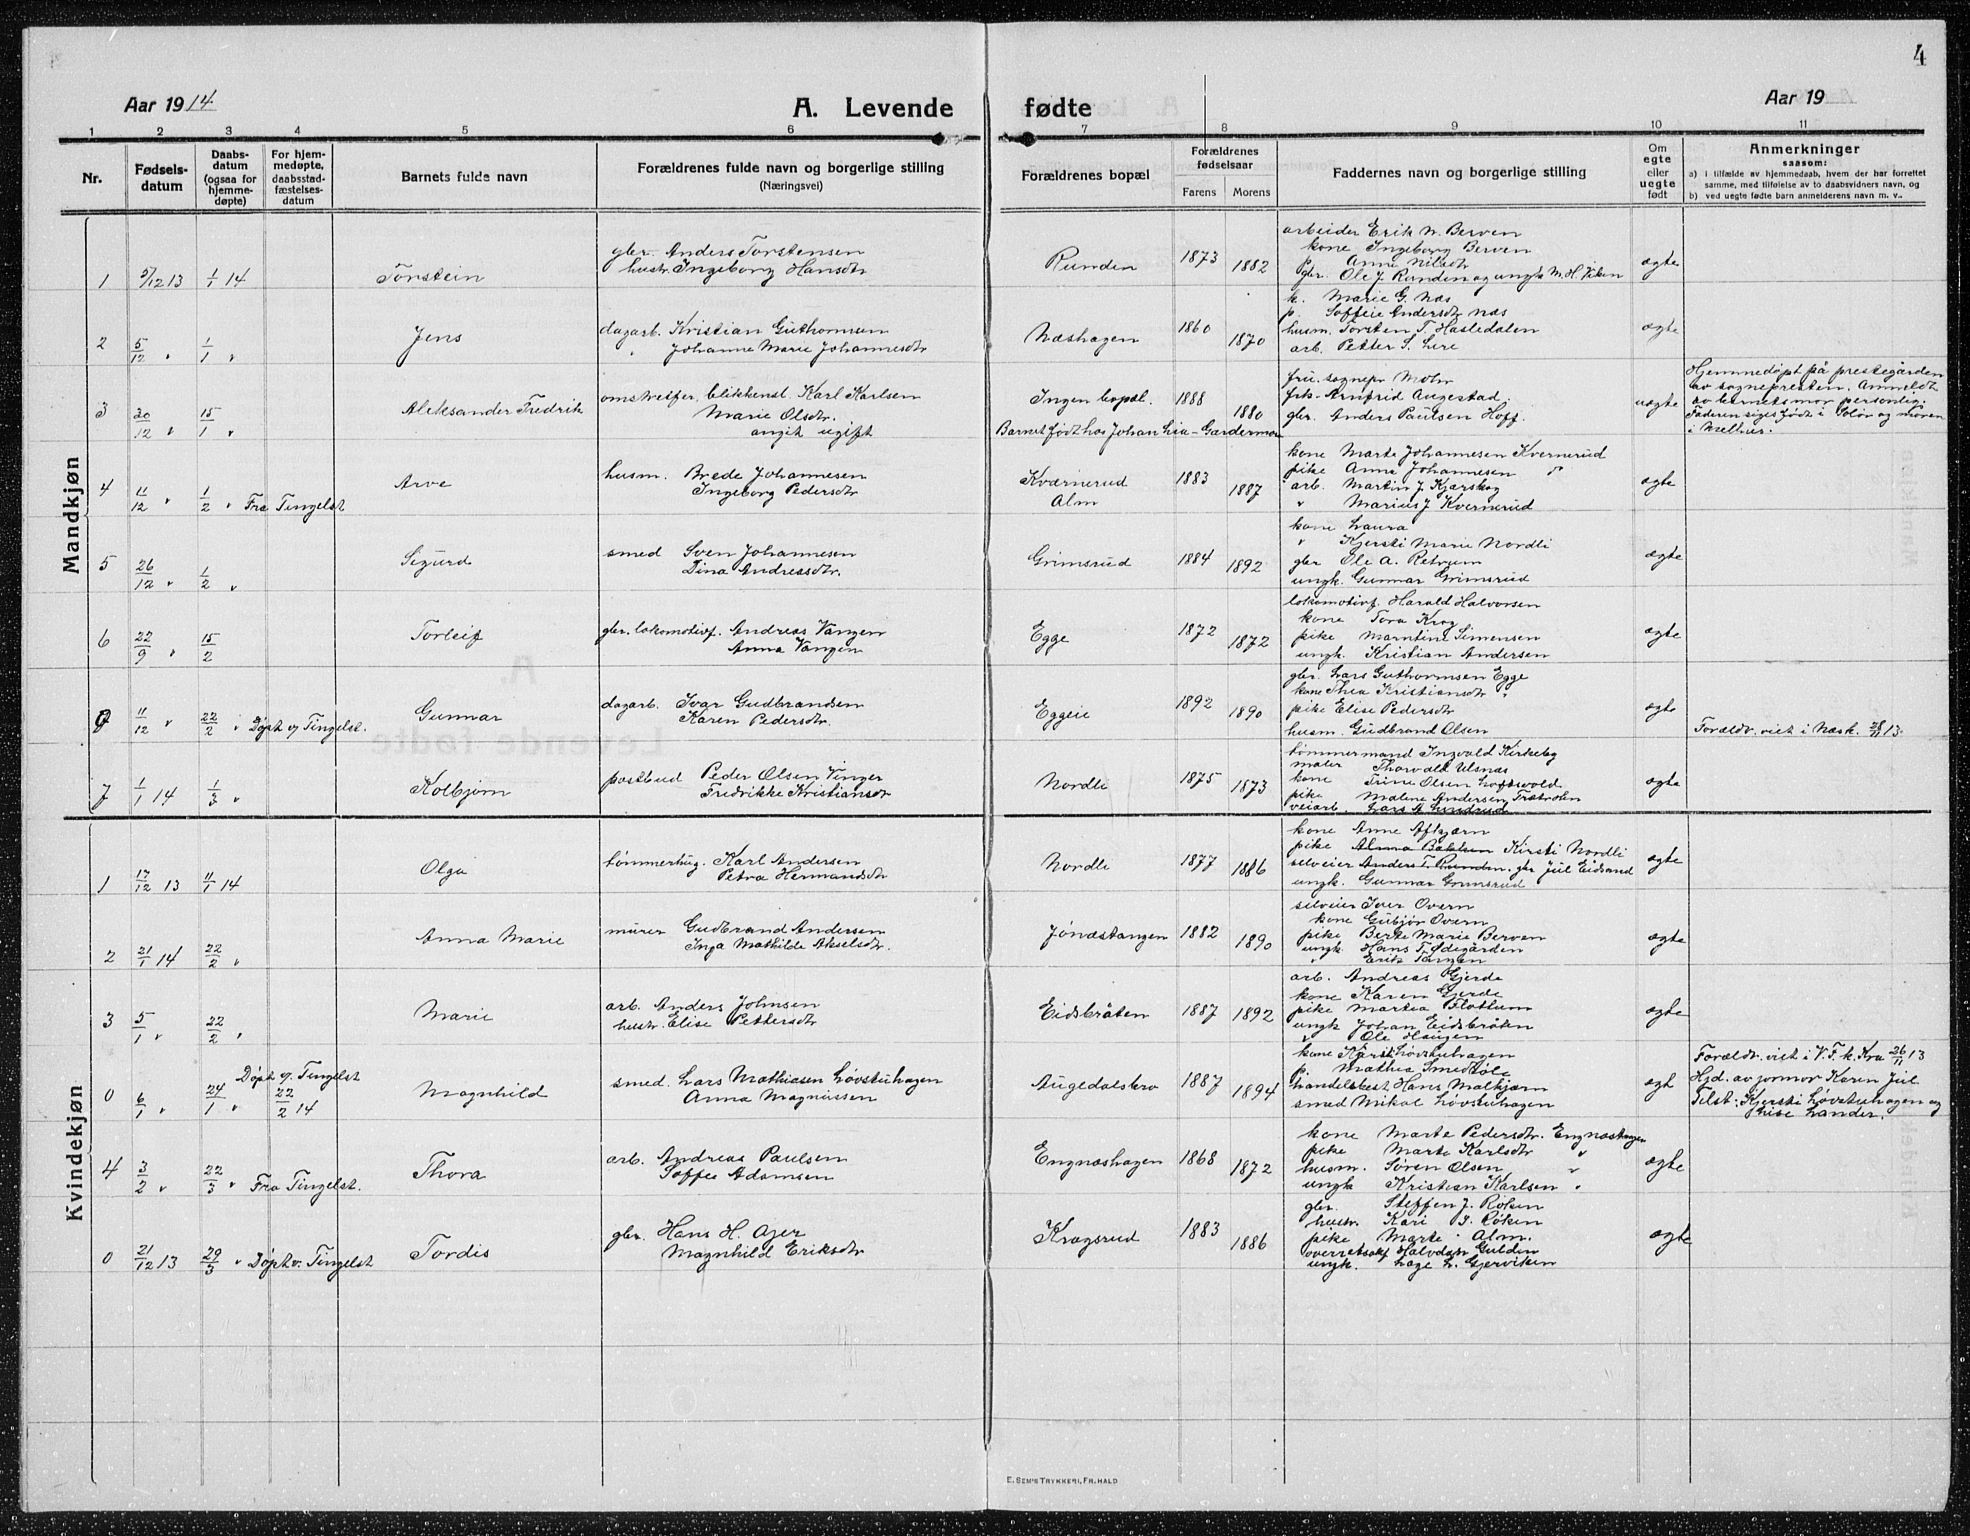 4
Aar 1914
A. Levende fødte
Aar 19
1 2 3 4 5 6 7 8 9 10 11
Nr.
Fødsels-
datum
Daabs-
datum
(ogsaa for
hjemme-
døpte)
For hjem-
medøpte,
daabsstad-
fæstelses-
datum
Barnets fulde navn
Forældrenes fulde navn og borgerlige stilling
(Næringsvei)
Forældrenes bopæl
Forældrenes
fødselsaar
Farens Morens
Faddernes navn og borgerlige stilling
Om
egte
eller
uegte
født
Anmerkninger
saasom:
a) I tilfælde av hjemmedaab, hvem der har forrettet
samme, med tilføielse av to daabsvidners navn, og
b) ved uegte fødte barn anmelderens navn m. v..
Mandkjøn
1 5/12 13 1/1 14 Torstein
gbr. Anders Torstensen
hustr. Ingeborg Hansdtr
Runden 1873 1882
arbeider Erik N. Berven
kone Ingeborg Berven
p. Anne Nilsdtr
gbr. Ole J. Runden og ungk M. H. Viken
ægte
2 5/12 " 1/1 " Jens
dagarb. Kristian Guthormsen
" Johanne Marie Johannesdtr
Næshagen 1860 1870
k. Marie G. Næs
p. Soffeie Andersdtr Næs
husm. Torsten T. Hasledalen
arb. Petter S. Lere
ægte
3 30/12 " 15/1 " Aleksander Fredrik
omstreifer, blikkensl. Karl Karlsen
Marie Olsdtr.
angik ugift
Ingen bopæl. 1888 1880
Barnet født hos Johan Lia - Gardermoen
fru. sognepr Mohr
frk. Arnfrid Augestad
gbr. Anders Paulsen Hoff.
uægte
Hjemmedøpt på prestegården
av sognepresten. Anmeldt
av barnets mor personlig.
Faderen siges født i Solør og moren
i Melhus.
4 11/12 " 1/2 " Fra Tingelst Arve
husm. Brede Johannesen
Ingeborg Pedersdtr
Kværnerud
Alm
1883 1887
kone Marte Johannesen Kvernerud
pike Anna Johannesen "
arb. Martin J. Kjærskog
" Marius J Kvernerud
ægte
5 26/12 " 1/2 " Sigurd
smed Sven Johannesen
Dina Andreasdtr.
Grimsrud 1884 1892
kone Laura
" Kjersti Marie Nordli
gbr Ole A. Retrum
ungk. Gunnar Grimsrud
ægte
6 22/9 " 15/2 Torleif
gbr. lokomotivf. Andreas Vangen
Anna Vangen
Egge 1872 1872
lokomotivf. Harald Halvorsen
kone Tora Krog
pike Marntine Simensen
ungk. Kristian Andersen
ægte
0 11/12 " 22/2 " Døpt v/ Tingelst. Gunnar
dagarb. Ivar Gudbrandsen
Karen Pedersdtr.
Eggeie 1892 1890
gbr. Lars Guthormsen Egge
kone Thea Kristiansdtr "
pike Elise Pedersdtr
husm. Gudbrand Olsen
ægte
Foreldr. viet i Næsk. 28/11 13.
7 1/1 14 1/3 " Kolbjørn
postbud Peder Olsen Vinger
Fredrikke Kristiansdtr
Nordli 1875 1873
tømmermand Ingvald Kirkeby
maler Thorvald Ulsnæs
kone Trine Olsen Loftsvold
pike Malene Andersen Trætrolen
veiarb. Lars A Lundrud
ægte
Kvindekjøn
1 17/12 13 11/1 14 Olga
tømmerhug. Karl Andersen
Petra Hermandsdtr
Nordli 1877 1886
kone Anne Afkjærn
pike Alma Bakken Kirsti Nordli
selveier Anders T. Runden. gbr Jul Eidsand
ungk. Gunnar Grimsrud
ægte
2 21/1 14 22/2 " Anna Marie
murer Gudbrand Andersen
Inga Mathilde Akselsdtr.
Jønastangen 1882 1890
selveier Iver Overn
kone Gubjør Overn
pike Berte Marie Berven
ungk. Hans T. Ødegården
" Erik Tangen
ægte
3 5/1 " 22/2 " Marie
arb. Anders Johnsen
hustr. Elise Pettersdtr
Eidsbråten 1887 1892
arb. Andreas Gjerde
kone Karen Gjerde
pike Martea Flattum
ungk Johan Eidsbråten
" Ole Haugen
ægte
0 6/1 " 24/1 " Døpt v. Tingelst 22/2 14 Magnhild
smed. Lars Mathiasen Løvstuhagen
Anna Magnussen
Augedalsbro 1887 1894
kone Kjersti Løvstuhagen
p. Mathea Smedtøle
handelsbest. Hans Malkjærn
smed Mikal Løvstuhagen
ægt
Foreldr. viet i V. F. k. Kra 26/11 13
Hjd. av jormor Karen Jul
Tilst: Kjersti Løvstuhagen og
Lise Lander.
4 3/2 " 22/3 " Fra Tingelst. Thora
arb. Andreas Paulsen
Soffie Adamsen
Engnæshagen 1868 1872
kone Marte Pedersdtr. Engnæshagen
pike Marte Karlsdtr "
husm. Søren Olsen "
ungk Kristian Karlsen "
ægte
0 21/12 13 29/3 " Døpt v. Tingelst Tordis
gbr. Hans H. Ajer
Magnhild Eriksdtr
Kragsrud 1883 1886
gbr. Steffen J. Røken
hustr. Kari J. Røken
pike Marte Alm.
overretssakf Halvdan Gulden
ungk. Lage L. Gjerviken
ægte
E. SEM'S TRYKKERI, FR.HALD